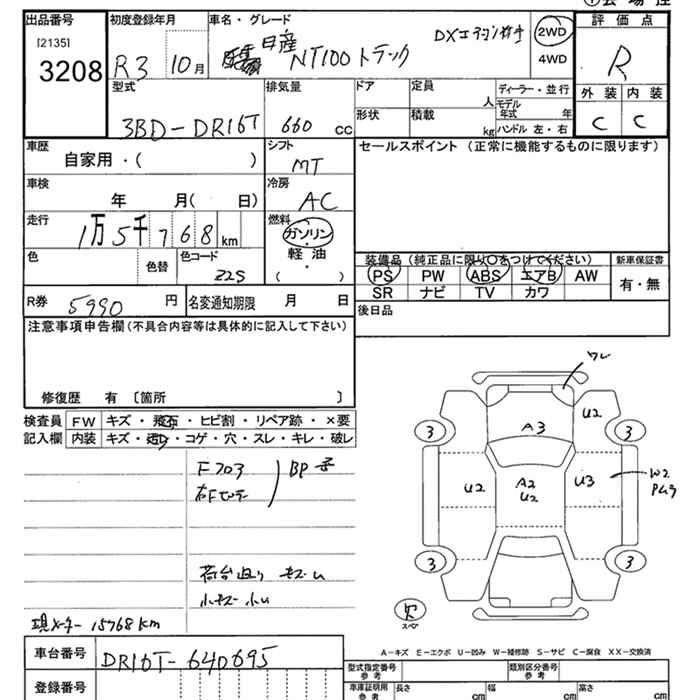 出品番号 初度登録年月 車名・グレード 評価点
[2135]
3208 R3 10月 日産 NT100トラック DXエアコン 2WD 4WD R
外装 内装
C C
型式 排気量 ドア 定員 人 ディーラー・並行
3BD-DR16T 660 cc 形状 積載 kg モデル年式 年
ハンドル 左・右
車歴 シフト セールスポイント (正常に機能するものに限ります)
自家用・( ) MT
車検 冷房
年 月( 日) AC
走行 燃料
1万5千768km ガソリン・軽油・( )
色 色替 色コード
Z2S
装備品 (純正品に限り○をつけてください) 新車保証書
PS PW ABS エアB AW 有・無
SR ナビ TV カワ
R券 5990 円 名変通知期限 月 日 後日品
注意事項申告欄(不具合内容等は具体的に記入して下さい)
修復歴 有 〔箇所 〕
検査員 FW キズ・飛石・ヒビ割・リペア跡・×要
記入欄 内装 キズ・汚・コゲ・穴・スレ・キレ・破レ
F703 BP
荷台
小キズ 小U
現メーター 15768km
ワレ
U2
A3
3 3
U2 A2 U2 U3 W2
3 3
欠
スペア
A-キズ E-エクボ U-凹み W-補修跡 S-サビ C-腐食 XX-交換済
車台番号 DR16T-640695
登録番号
型式指定番号 参考 類別区分番号 参考
車庫証明用 参考 長さ cm 幅 cm 高さ cm